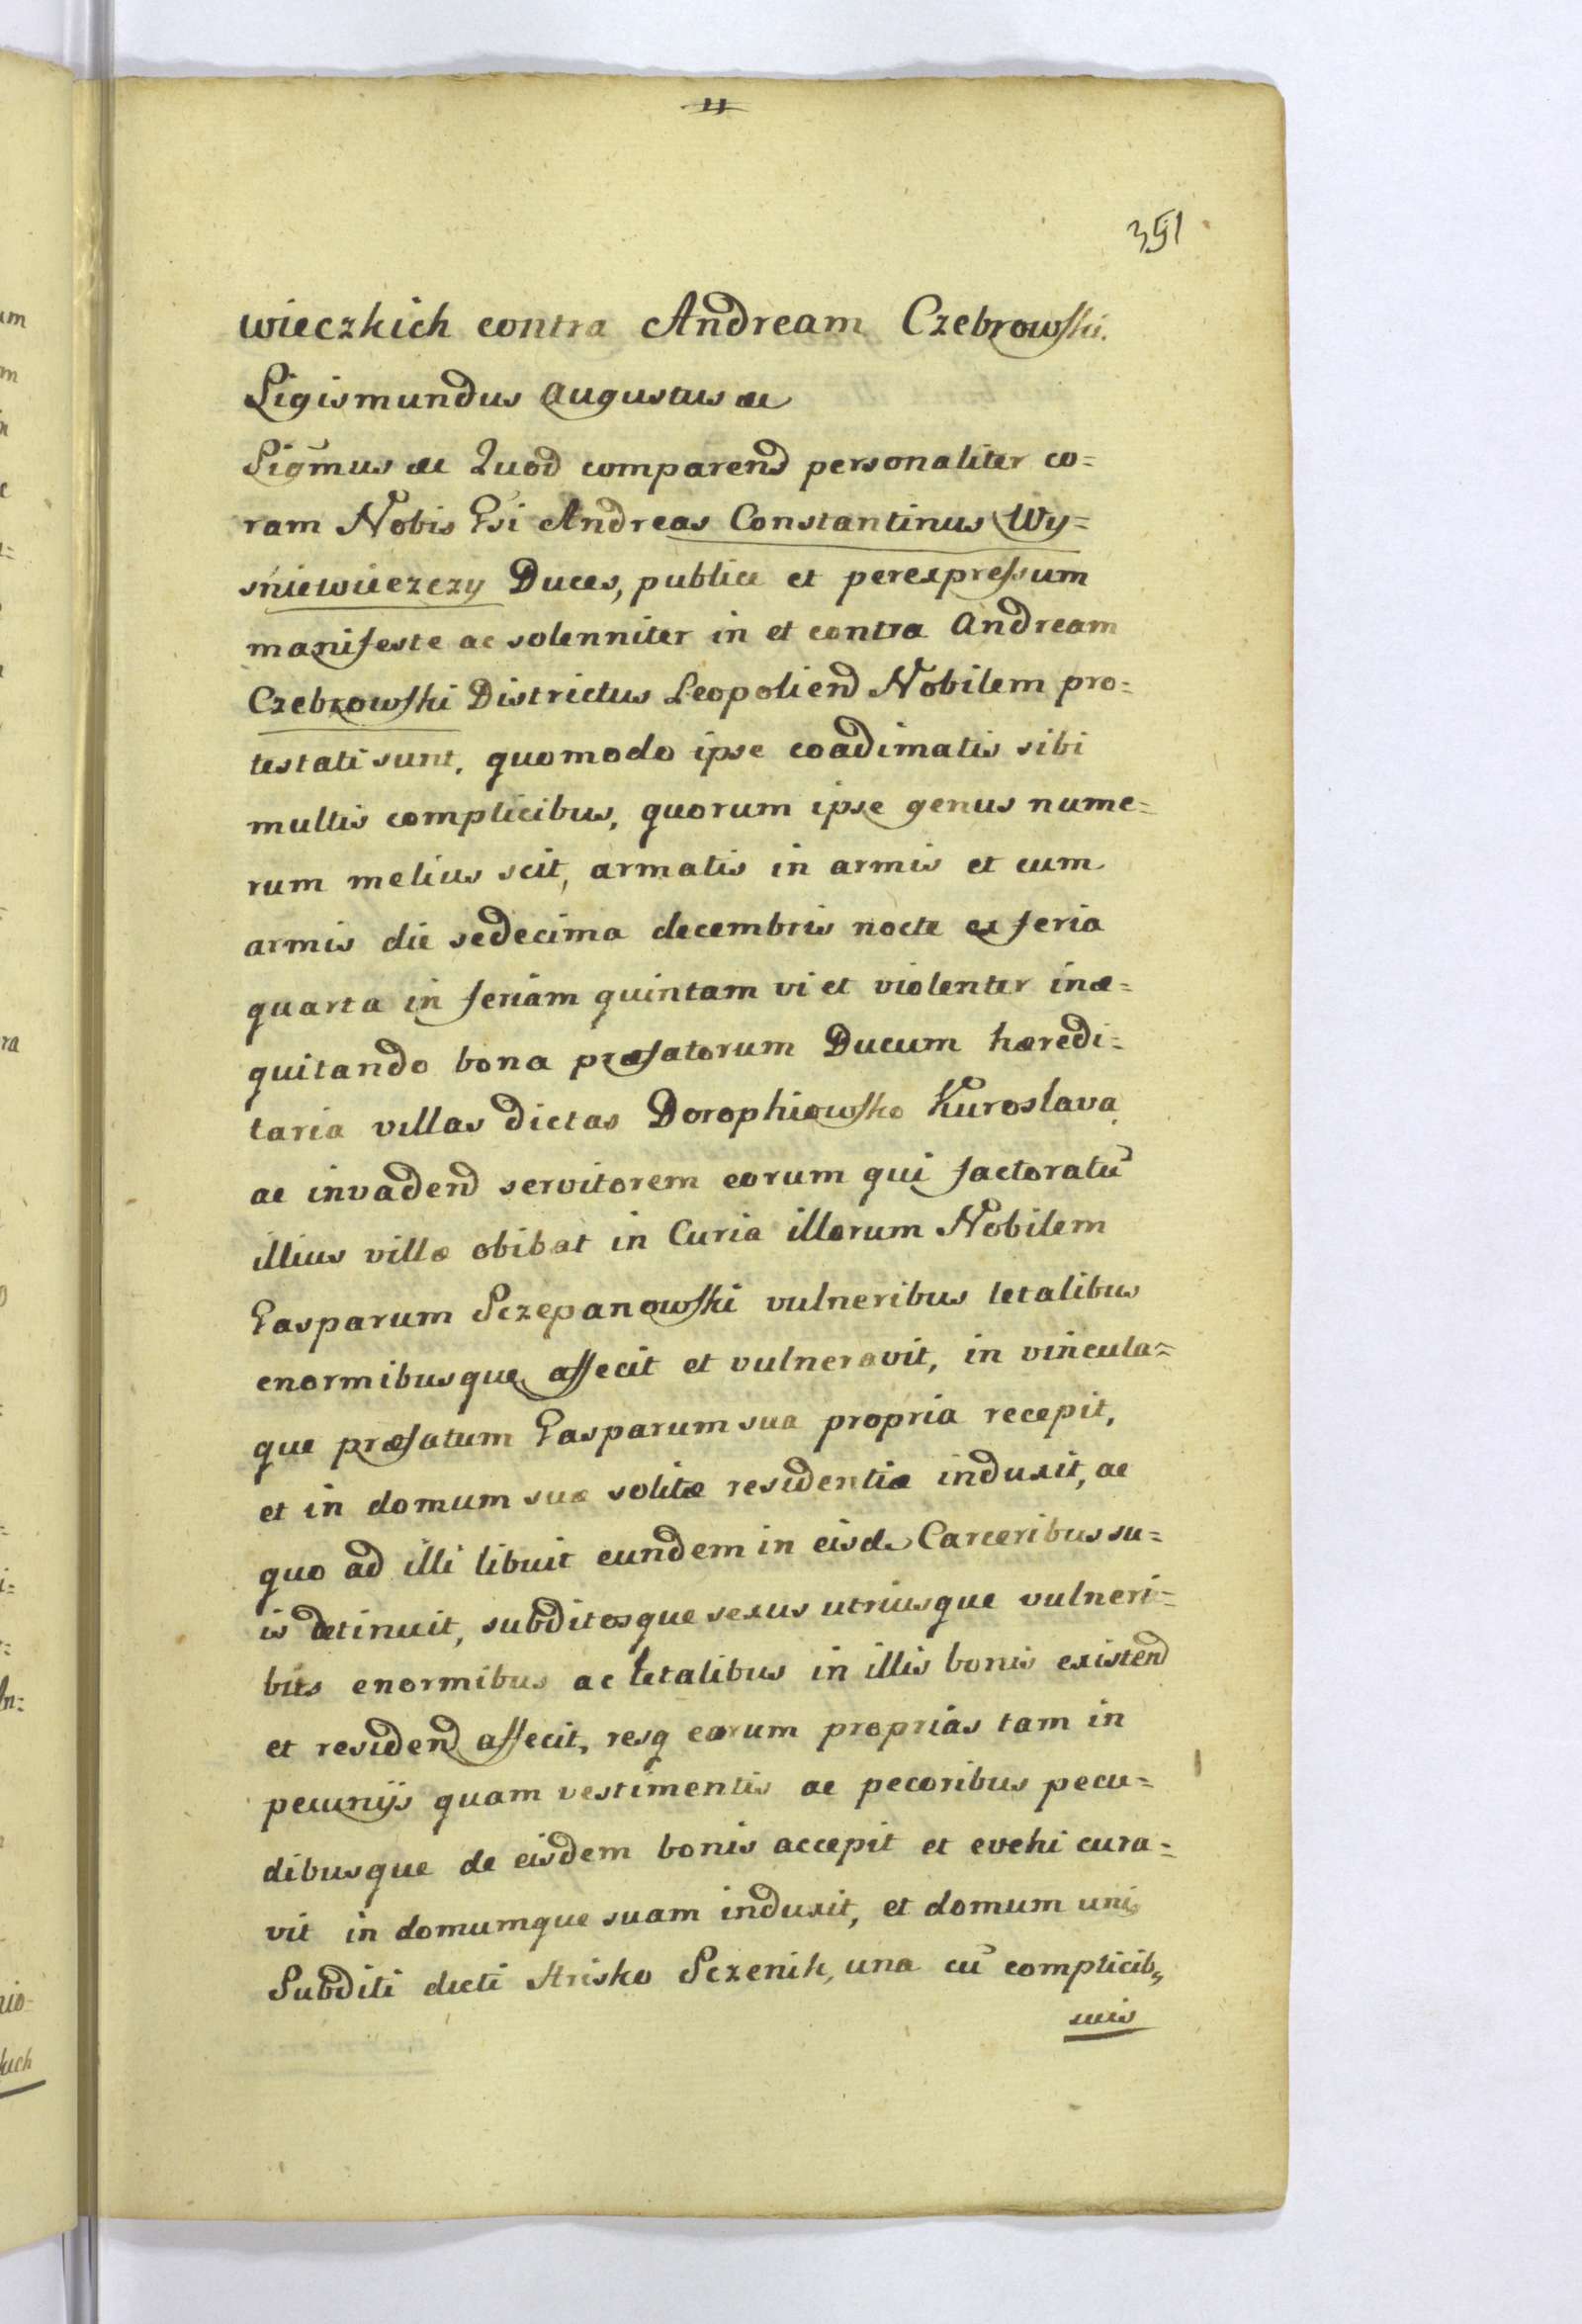 11
351
wieczkich contra Andream Czebrowski.
Sigismundus Augustus &c
Sigmus &c Quod comparend personaliter co=
ram Nobis Gsi Andreas Constantinus Wy=
sniewiezczy Duces, publice et perexpressum
manifeste ac solenniter in et contra Andream
Czebrowski Districtus Leopoliend Nobilem pro=
testati sunt, quomodo ipse coadimatis sibi
multis complicibus, quorum ipse genus nume=
rum melius scit, armatis in armis et cum
armis die sedecima decembris nocte ex feria
quarta in feriam quintam vi et violenter inæ=
quitando bona præfatorum Ducum hæredi=
taria villas dictas Dorophiowsko Kuroslava
ac invadend servitorem eorum qui factoratū
illius villæ obibat in Curia illorum Nobilem
Gasparum Sczepanowski vulneribus letalibus
enormibusque affecit et vulneravit, in vincula=
que præfatum Gasparum sua propria recepit,
et in domum suæ solitæ residentiæ induxit, ac
quo ad illi libuit eundem in eisd Carceribus su=
is detinuit, subditosque sexus utriusque vulneri=
bus enormibus ac letalibus in illis bonis existend
et residend affecit, resq earum proprias tam in
pecunijs quam vestimentis ac pecoribus pecu=
dibusque de eisdem bonis accepit et evehi cura=
vit in domumque suam induxit, et domum uni,
Subditi dicti Hrisko Sczenik, una cū complicib,
suis